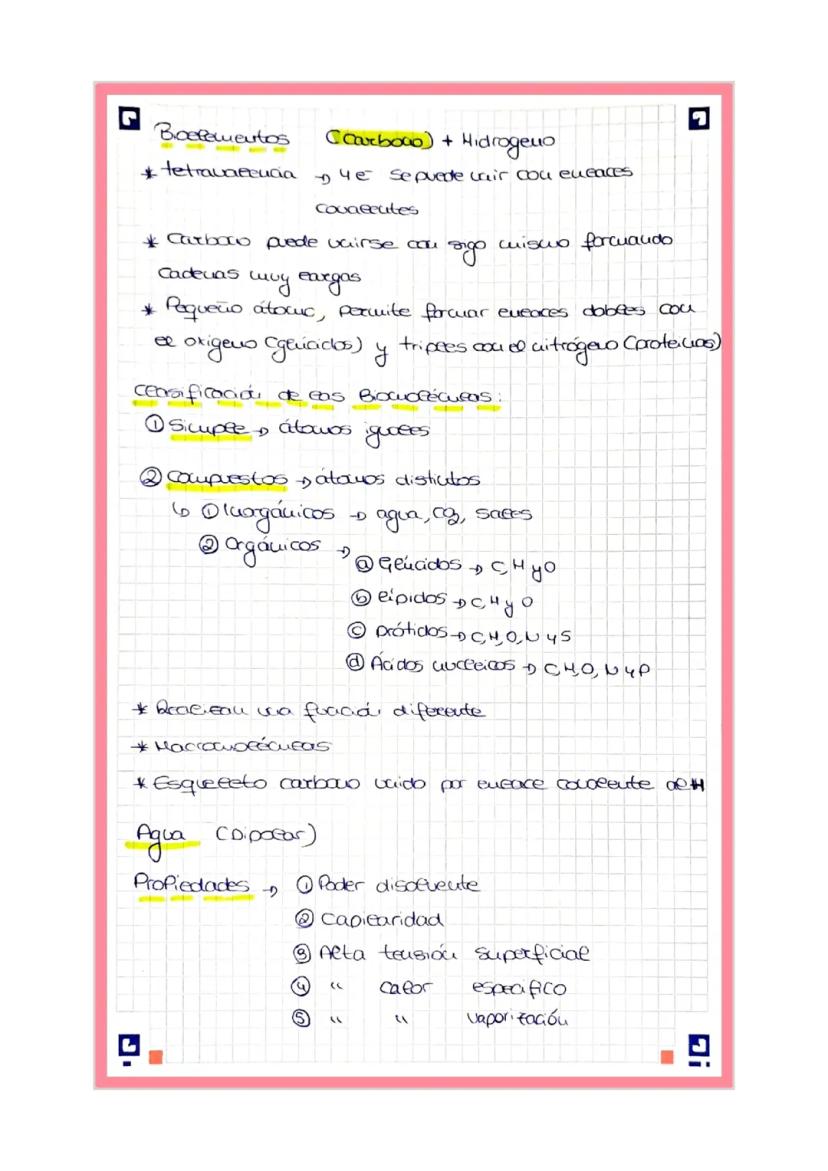 Bioelementos (Carbono) + Hidrogeno
* tetravalencia → 4e⁻ se puede unir con enlaces
covalentes
* Carbono puede unirse con sigo mismo formando
cadenas muy largas
* Pequeño átomo, permite formar enlaces dobles con
el oxigeno (glúcidos) y triples con el nitrógeno (proteínas)
Clasificación de las Biomoléculas:
① Simple → átomos iguales
② Compuestos → átomos distintos
↳ ① Inorgánicos → agua, CO2, sales
② Orgánicos →
ⓐ Glúcidos → C, H y O
ⓑ lípidos → C, H y O
ⓒ prótidos → C, H, O, N y S
ⓓ Ácidos nucleicos → C, H, O, N y P
* Realizan una función diferente
* Macromoléculas
* Esqueleto carbono unido por enlace covalente al H
Agua (Dipolar)
Propiedades → ① Poder disolvente
② Capilaridad
③ Alta tensión superficial
④ " calor especifico
⑤ " " vaporización